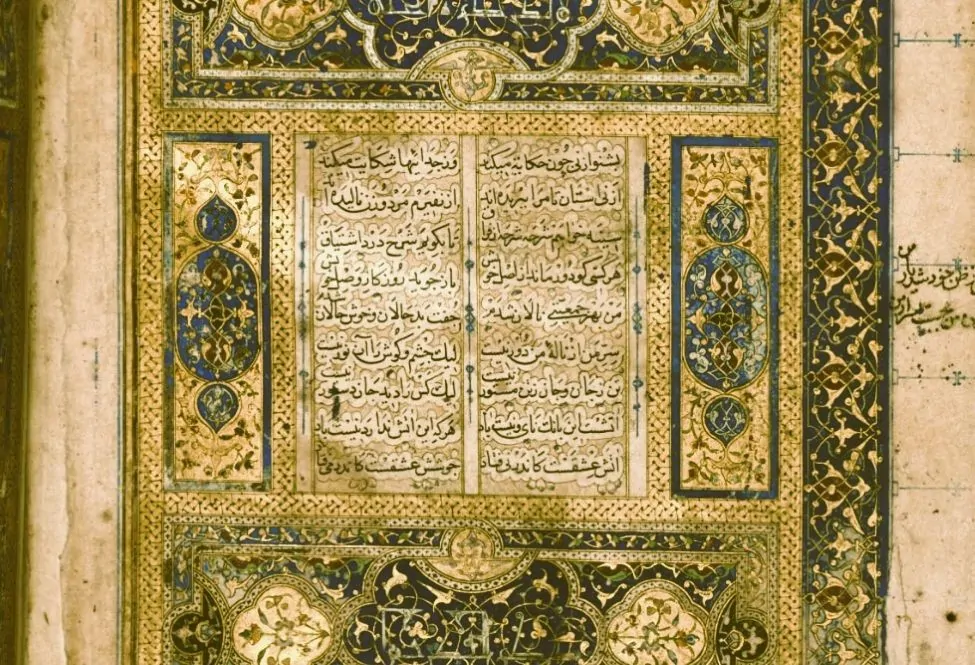 بشنو از نی چون حکایت میکند وز جداییها شکایت میکند
از نی ستان تا مرا ببریده اند از نفیرم مرد و زن نالیده اند
سینه خواهم شرحه شرحه از فراق تا بگویم شرح درد اشتیاق
هر کسی کو دور ماند از اصل خویش باز جوید روزگار وصل خویش
من بهر جمعیتی نالان شدم جفت بدحالان و خوش حالان شدم
سر من از ناله من دور نیست لیک چشم و گوش را آن نور نیست
تن ز جان و جان ز تن مستور نیست لیک کس را دید جان دستور نیست
آتشست این بانگ نای و نیست باد هر که این آتش ندارد نیست باد
آتش عشقست کاندر نی فتاد جوشش عشقست کاندر می فتاد
ظن خود شد یار من